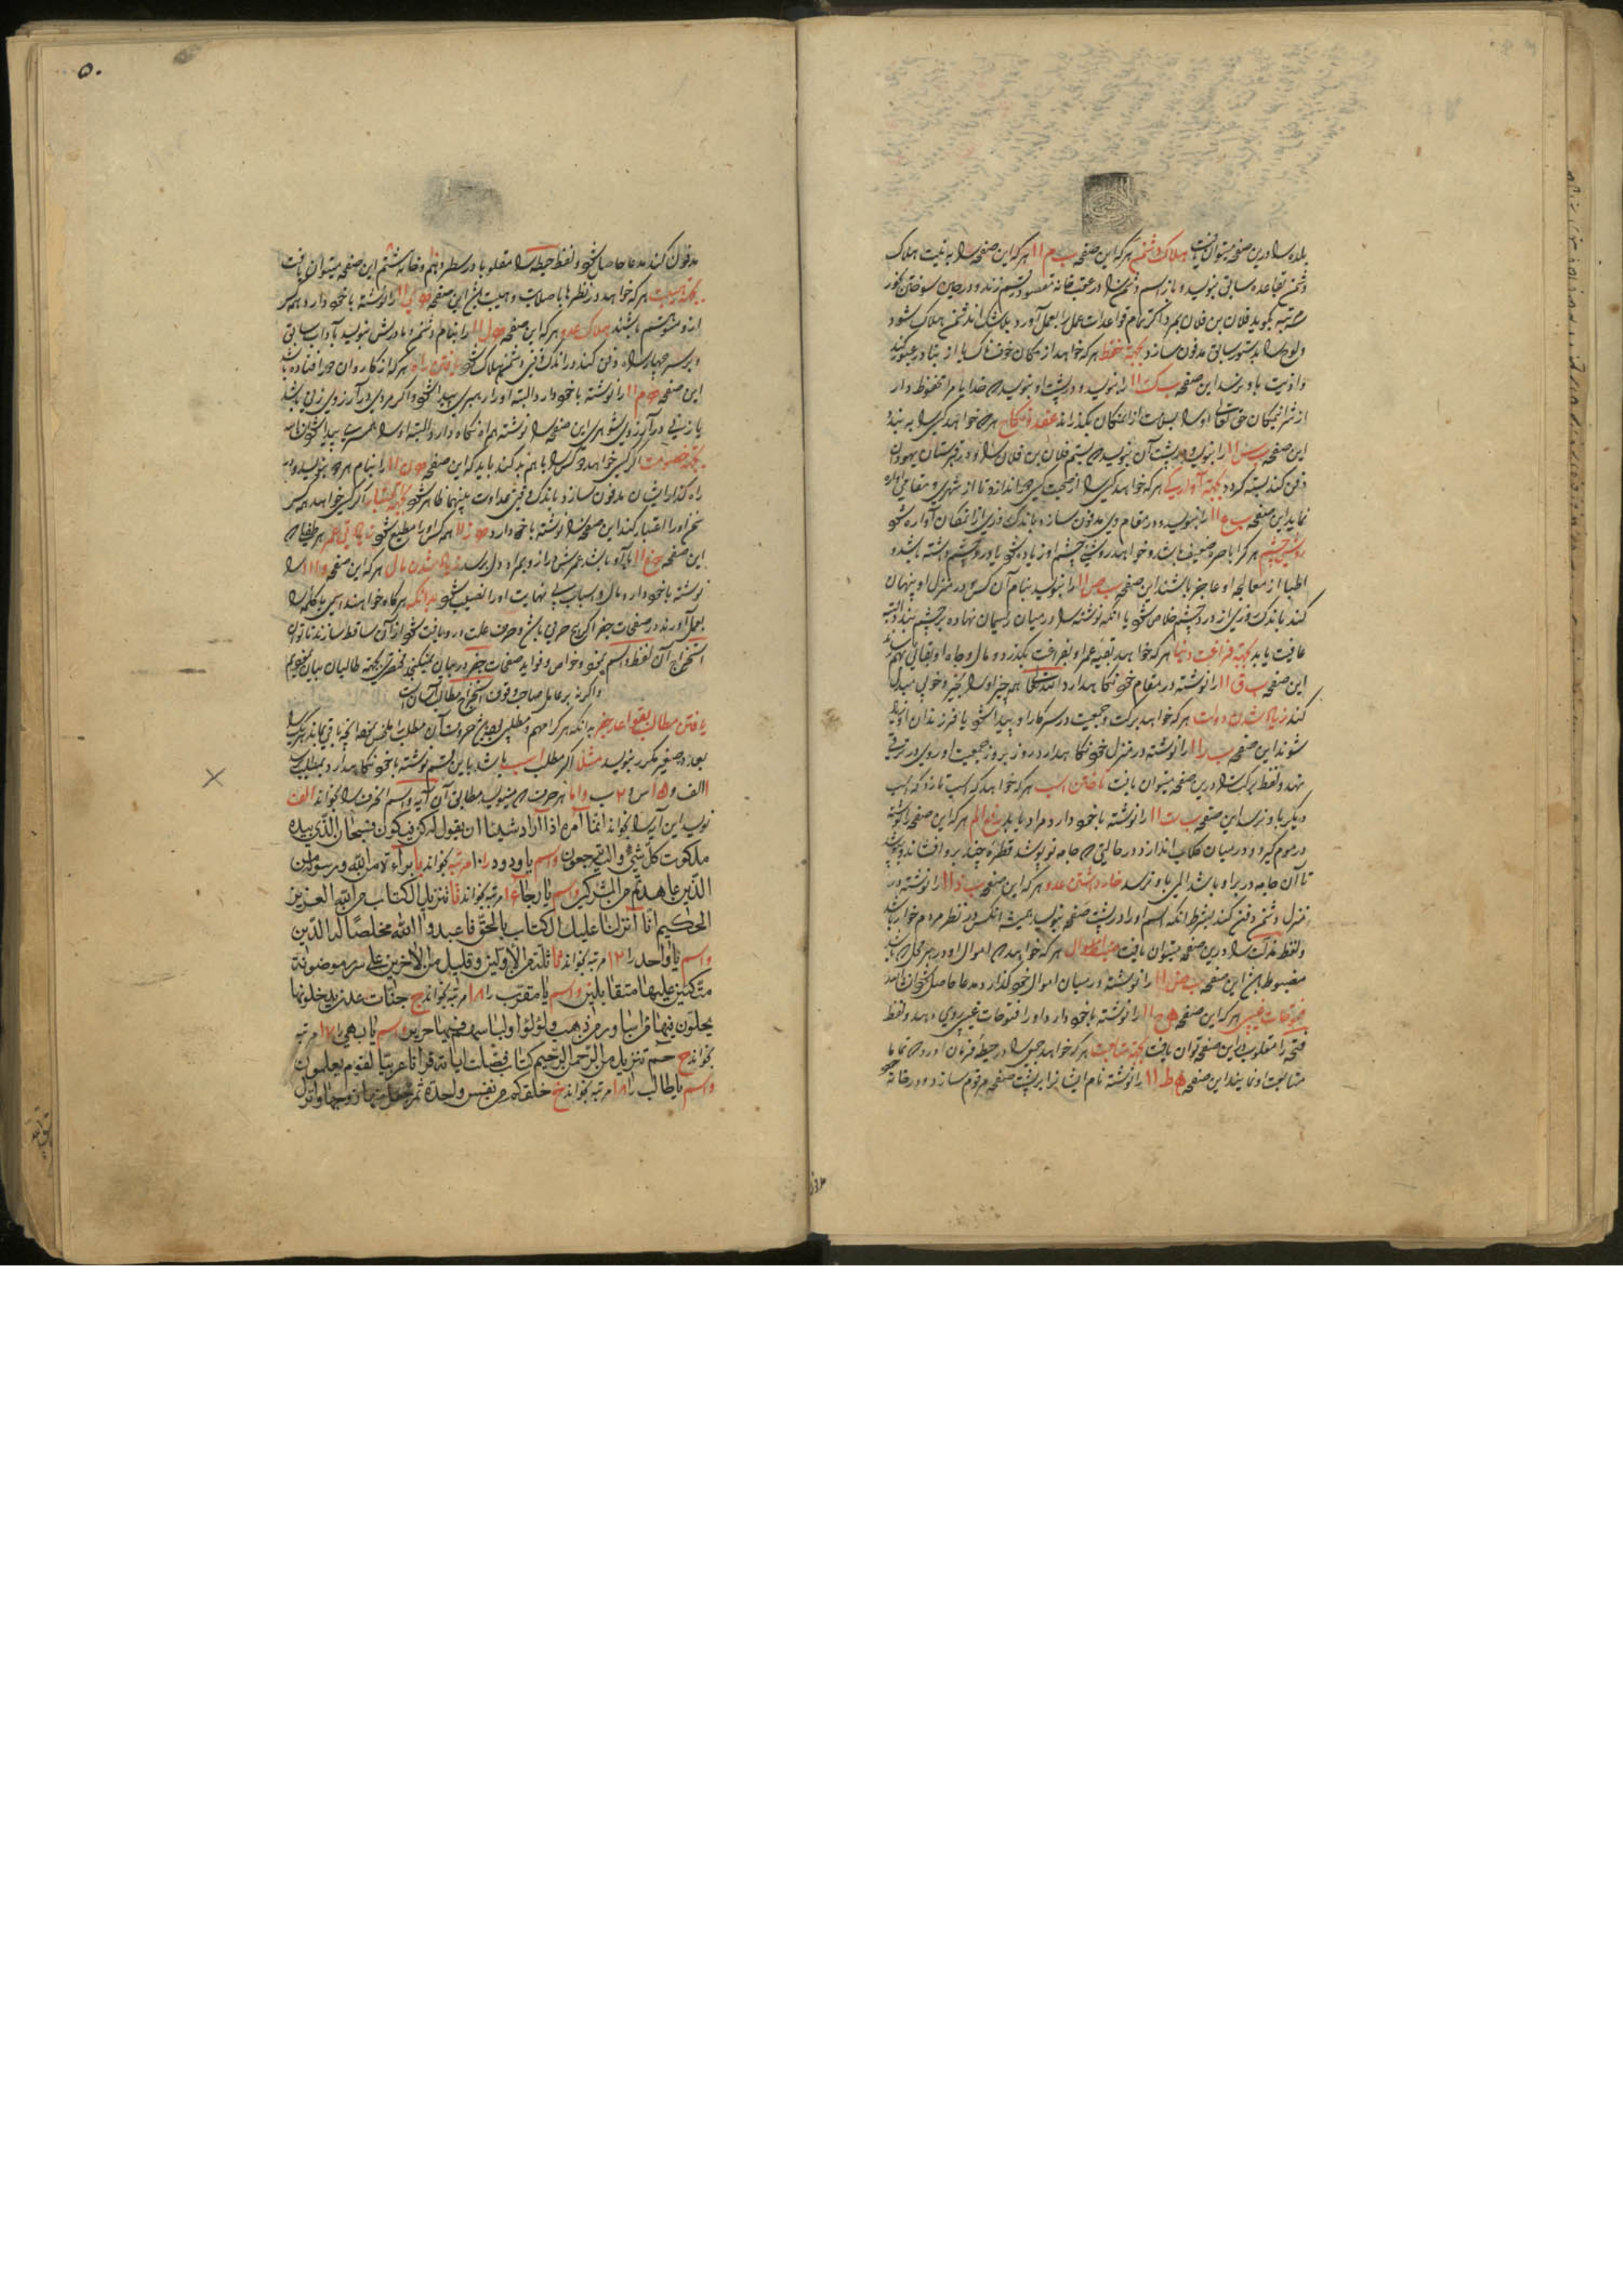 بلده را درین صفحه میتوان یافت هلاک دشمن هرکه این صفحه ب م ۱۱ هرکه این صفحه را به نیت هلاک
دشمن بقاعده سابق بنویسد و باز اسم دشمن را در و در حین سوختن بخور
مرتبه بگوید فلان بن فلان بمیرد اگر تمام قواعدات عمل را بعمل آورد بلاشک آن دشمن هلاک شود
و لوح را بدستور سابق مدفون سازد بجهة حفظ هرکه خواهد از مکان خوفناک یا از عبور کند
و اذیت باو نرسد این صفحه ب ک ۱۱ را بنویسد و در پشت او بنویسد که خدایا مرا محفوظ دار
از شر حق تعالی او را بسلامت از آن مکان بگذراند عقد نکاح هرکه خواهد کسی را به بندد
این صفحه ب س ۱۱ را بنویسد و در پشت آن بنویسد که بستم فلان بن فلان را و در قبرستان یهودان
دفن کند بسته گردد بجهة آوارگی هرکه خواهد کسی را از صحبت کسی جدا اندازد تا از شهری و مقامی آواره
نماید این صفحه ب ع ۱۱ را بنویسد و در مقام وی مدفون سازد باندک روزی از آن مکان آواره شود
روشنی چشم هرکرا باصره ضعیف باشد و خواهد روشنی چشم او زیاده شود یا درد چشم داشته باشد و
اطبا از معالجه او عاجز باشند این صفحه ب ص ۱۱ را بنویسد بنام آن کس و در منزل او پنهان
کند باندک روزی از درد چشم خلاص شود یا آنکه نوشته را در میان ریسمان نهاده بر چشم بندد البته
عافیت یابد بجهة فراغت دنیا هرکه خواهد بقیه عمر او بفراغت بگذرد و مال و جاه او بقائی بهم رساند
این صفحه ب ق ۱۱ را نوشته در مقام خود نگاهدارد انشاالله همه چیز او را بخیر و خوبی مبدل
کند زیاد شدن دولت هرکه خواهد برکت و جمعیت در سرکار او پیدا شود یا فرزندان او زیاده
شوند این صفحه ب ر ۱۱ را نوشته در منزل خود نگاهدارد روز بروز جمعیت او روی در ترقی
نهد و لفظ برکت را درین صفحه میتوان یافت تاختن اسب هرکه خواهد که اسب تازد که اسب
دیگر باو نرسد این صفحه ب ت ۱۱ را نوشته با خود دارد مراد یابد رفع الم هرکه این صفحه را نوشته
در موم گیرد و در میان گلاب اندازد و در حالتی که جامه نو پوشد قطره چند برو افشاند و بپوشد
تا آن جامه در بر او باشد المی باو نرسد خار داشتن عدو هرکه این صفحه ب ذ ۱۱ را نوشته در
منزل دشمن دفن کند بشرط آنکه اسم او را در پشت صفحه بنویسد همیشه آنکس در نظر مردم خوار باشد
و لفظ مذلت را درین صفحه میتوان یافت ضبط اموال هرکه خواهد که اموال او در هر محل که باشد
مضبوط باشد این صفحه ب ض ۱۱ را نوشته در میان اموال خود گذارد مدعا حاصل شود انشاالله
فتوحات غیبی هرکه این صفحه ح ۱۱ را نوشته با خود دارد او را فتوحات غیبی روی دهد و لفظ
فتحه را مقلوب در این صفحه توان یافت بجهة متابعت هرکه خواهد جمعی را در حیطه فرمان آورد که تماما
متابعت او نمایند این صفحه ط ۱۱ را نوشته نام ایشانرا بر پشت صفحه مرقوم سازد و در خانه خود
۵۰
مدفون کند مدعا حاصل شود و لفظ حیطه را مقلوبا در سطر دهم و خانه ششم این صفحه میتوان یافت
بجهة هیبت هرکه خواهد در نظرها با صلابت و هیبت باشد این صفحه ی ۱۱ را نوشته با خود دارد همه کس
ازو متوهم باشند هلاک عدو هرکه این صفحه ل ۱۱ را بنام دشمن و مادرش بنویسد بآداب سابق
و بر سر چهار راه دفن کند در اندک وقتی دشمن هلاک شود یافتن راه هرکه از کاروان جدا افتاده باشد
این صفحه م ۱۱ را نوشته با خود دارد البته او را رهبری پیدا شود و اگر مردی در آرزوی زنی باشد
یا زنی در آرزوی شوهر این صفحه را نوشته همراه نگاه دارد البته او را همسری پیدا شود انشاالله
بجهة خصومت اگر کسی خواهد دو کس را باهم بد کند باید که این صفحه ن ۱۱ را بنام هر دو بنویسد و در
راه گذار ایشان مدفون سازد باندک وقتی عداوت بینهما ظاهر شود بجهة اعتبار اگر کسی خواهد همه کس
سخن او را اعتبار کنند این صفحه را نوشته با خود دارد ز ۱۱ همه کس او را مطیع شود زیادتی عمر هر طفلی که
این صفحه غ ۱۱ با او باشد عمرش دراز و بمراد دل برسد زیاد شدن مال هرکه این صفحه و ۱۱۱ را
نوشته با خود دارد مال و اسباب بی نهایت او را نصیب شود بدانکه هرگاه خواهند اسمی یا کلمه را
بعمل آورند در صفحات جفر اگر پنج حرفی باشد و حرف علت درو یافت شود از آن ساقط سازند تا توان
استخراج آن لفظ و اسم نمود و خواص و فواید صفحات جفر در بیان نمیگنجد مختصری بجهة طالبان بیان نمودیم
و اگرنه بر عامل صاحب وقوف استخراج مطالب آسان است
یافتن مطالب بقواعد جفر بدانکه هرکرا مهم و مطلبی واقع شود حروفات آن مطلب را ملخص نموده آنچه باقی ماند هر یک را
بعدد صغیر مکرر بنویسد مثلا اگر مطلب اسب باشد باین قسم نوشته با خود نگاهدارد بمطلب رسد
۱ الف و ۱۵ س و ۲ ب و اما هر حرف که مینویسد مطابق آن آیه و اسم الحرف را بخواند الف
نویسد این آیه را بخواند انما امره اذا اراد شیئا ان یقول له کن فیکون فسبحان الذی بیده
ملکوت کل شیء و الیه ترجعون و اسم یا ودود را ۱۰ مرتبه بخواند با برآءة من الله و رسوله الی
الذین عاهدتم من المشرکین و اسم را ۱۶ مرتبه بخواند تا تنزیل الکتاب من الله العزیز
الحکیم انا انزلنا علیک الکتاب بالحق فاعبدوا الله مخلصا له الدین
و اسم یا واحد را ۱۲ مرتبه بخواند ثا ثلة من الاولین و قلیل من الاخرین علی سرر موضونة
متکئین علیها متقابلین و اسم یا متقرب را ۱۸ مرتبه بخواند ج جنات عدن یدخلونها
یحلون فیها من اساور من ذهب و لؤلؤا و لباسهم فیها حریر و اسم را ۱۷ مرتبه
بخواند ح حم تنزیل من الرحمن الرحیم کتاب فصلت ایاته قرانا عربیا لقوم یعلمون
و اسم یا طالب را ۱۸ مرتبه بخواند خ خلقکم من نفس واحدة ثم جعل منها زوجها و انزل